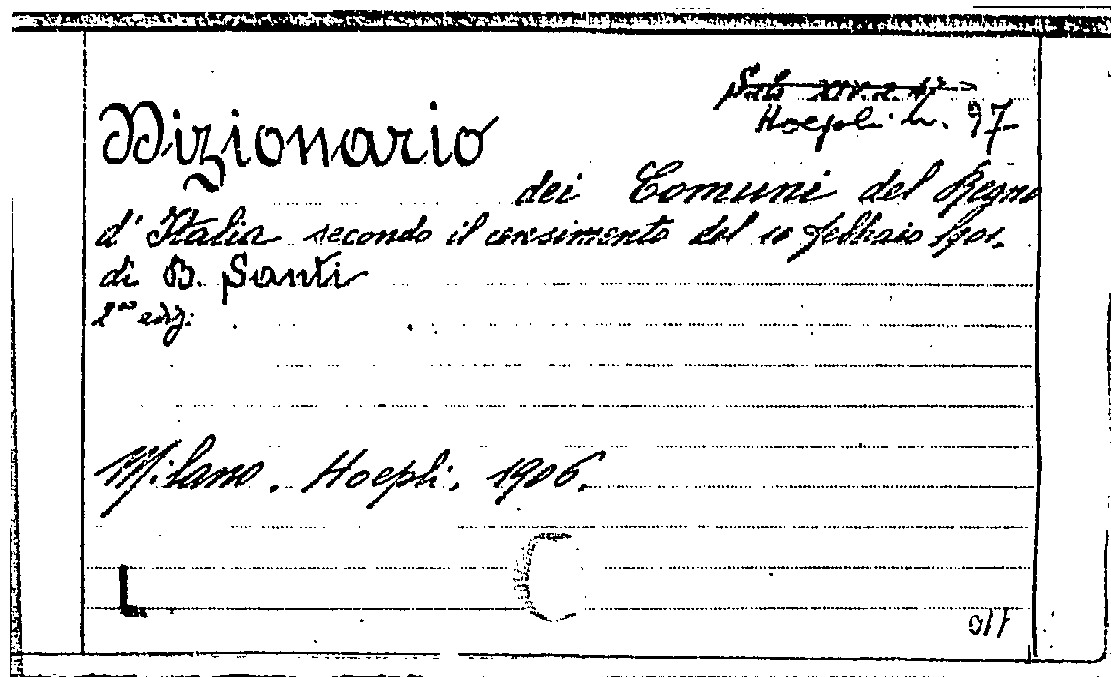 Sala XIV. 2. 47
Hoepli h. 97
Dizionario
dei Comuni del Regno
d'Italia secondo il censimento del 10 febbraio 1901.
di B. Santi
2ª ediz.
Milano. Hoepli. 1906.
L